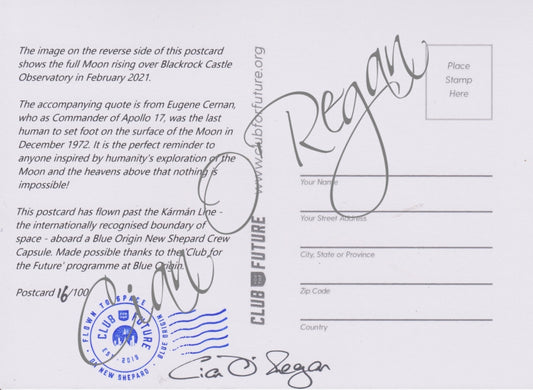 The image on the reverse side of this postcard
shows the full Moon rising over Blackrock Castle
Observatory in February 2021.
The accompanying quote is from Eugene Cernan,
who as Commander of Apollo 17, was the last
human to set foot on the surface of the Moon in
December 1972. It is the perfect reminder to
anyone inspired by humanity's exploration of the
Moon and the heavens above that nothing is
impossible!
This postcard has flown past the Kármán Line -
the internationally recognised boundary of
space - aboard a Blue Origin New Shepard Crew
Capsule. Made possible thanks to the 'Club for
the Future' programme at Blue Origin.
Postcard 16/100
FLOWN TO SPACE
CLUB FUTURE
EST - 2019
ON NEW SHEPARD
BLUE ORIGIN
Cian O Regan
Cian O Regan
www.clubforfuture.org
CLUB FUTURE
Place
Stamp
Here
Your Name
Your Street Address
City, State or Province
Zip Code
Country